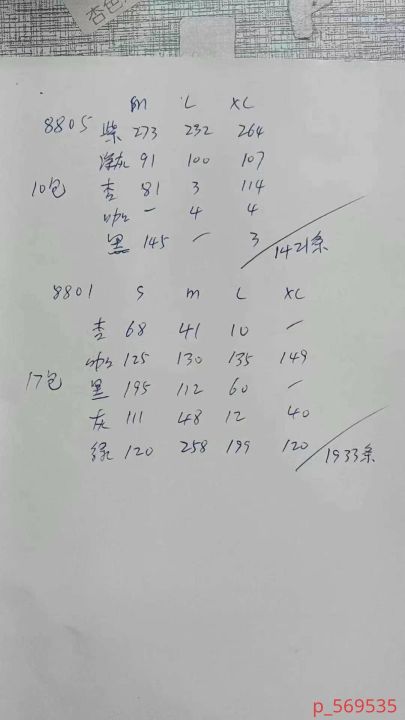 杏色
M L XL
8805 紫 273 232 264
灰 91 100 107
10包 杏 81 3 114
咖 — 4 4
黑 145 — 3
1421条
8801 S M L XL
杏 68 41 10 —
咖 125 130 135 149
17包 黑 195 112 60 —
灰 111 48 12 40
绿 120 258 199 120
1933条
p_569535